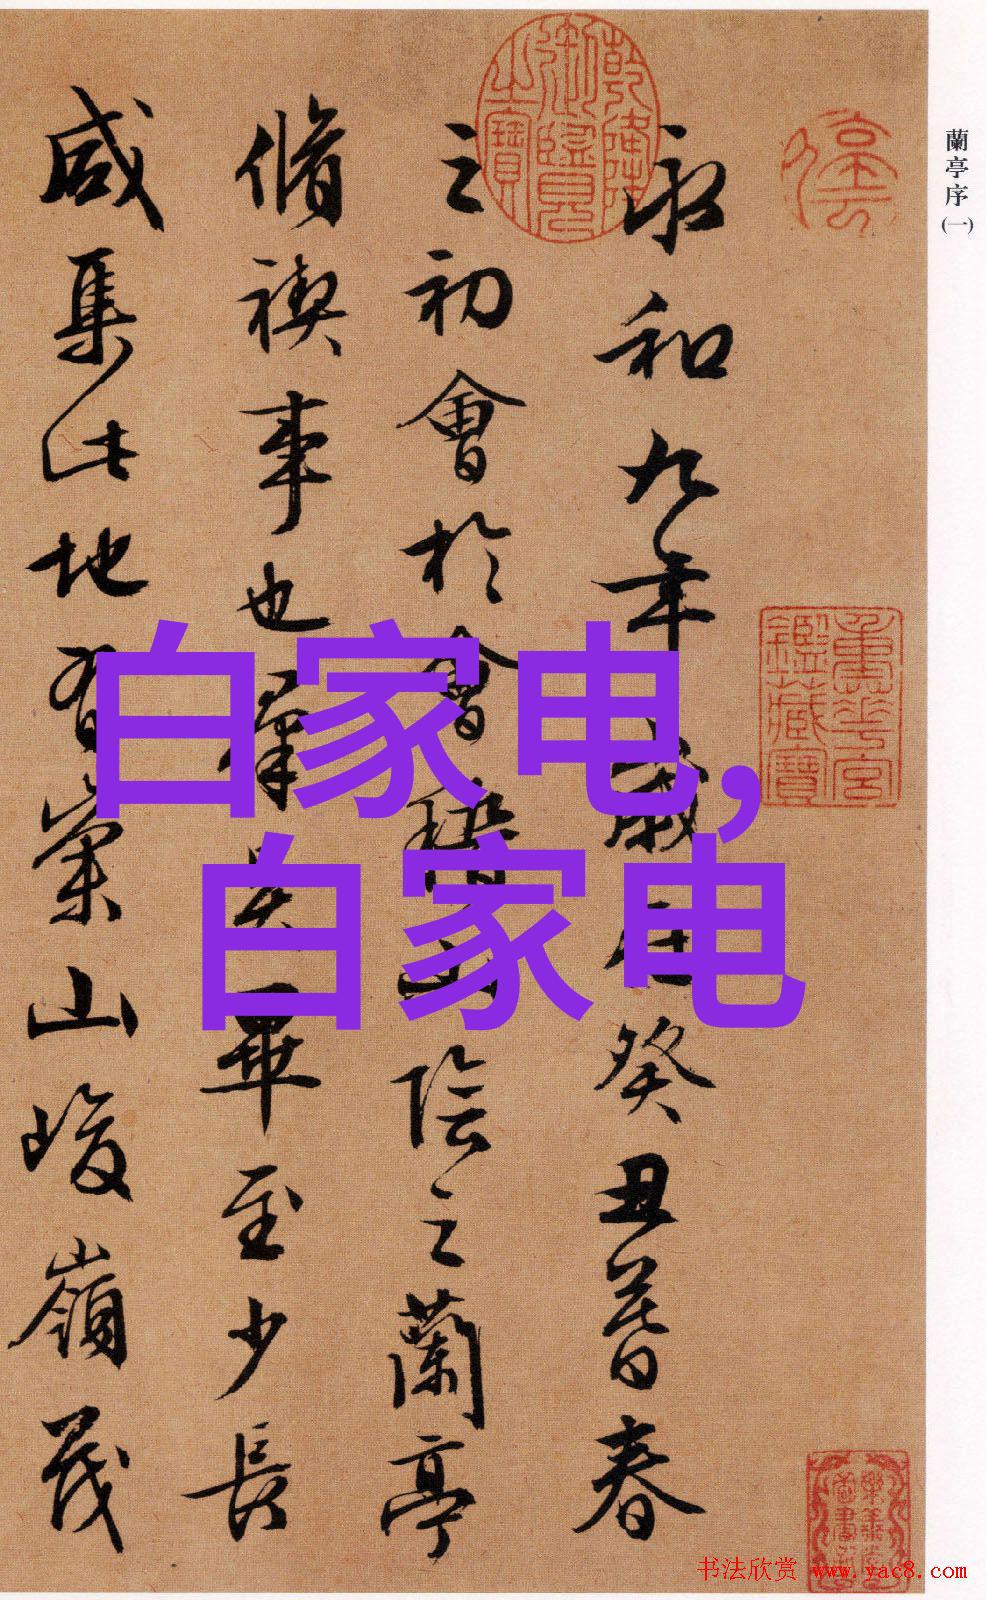 蘭亭序(一)
永和九年歲在癸丑暮春
之初會於會稽山陰之蘭亭
脩禊事也羣賢畢至少長
咸集此地有崇山峻嶺茂
乾隆御覽之寶
重華宮鑑藏寶
白家电,
白家电
书法欣赏 www.yac8.com